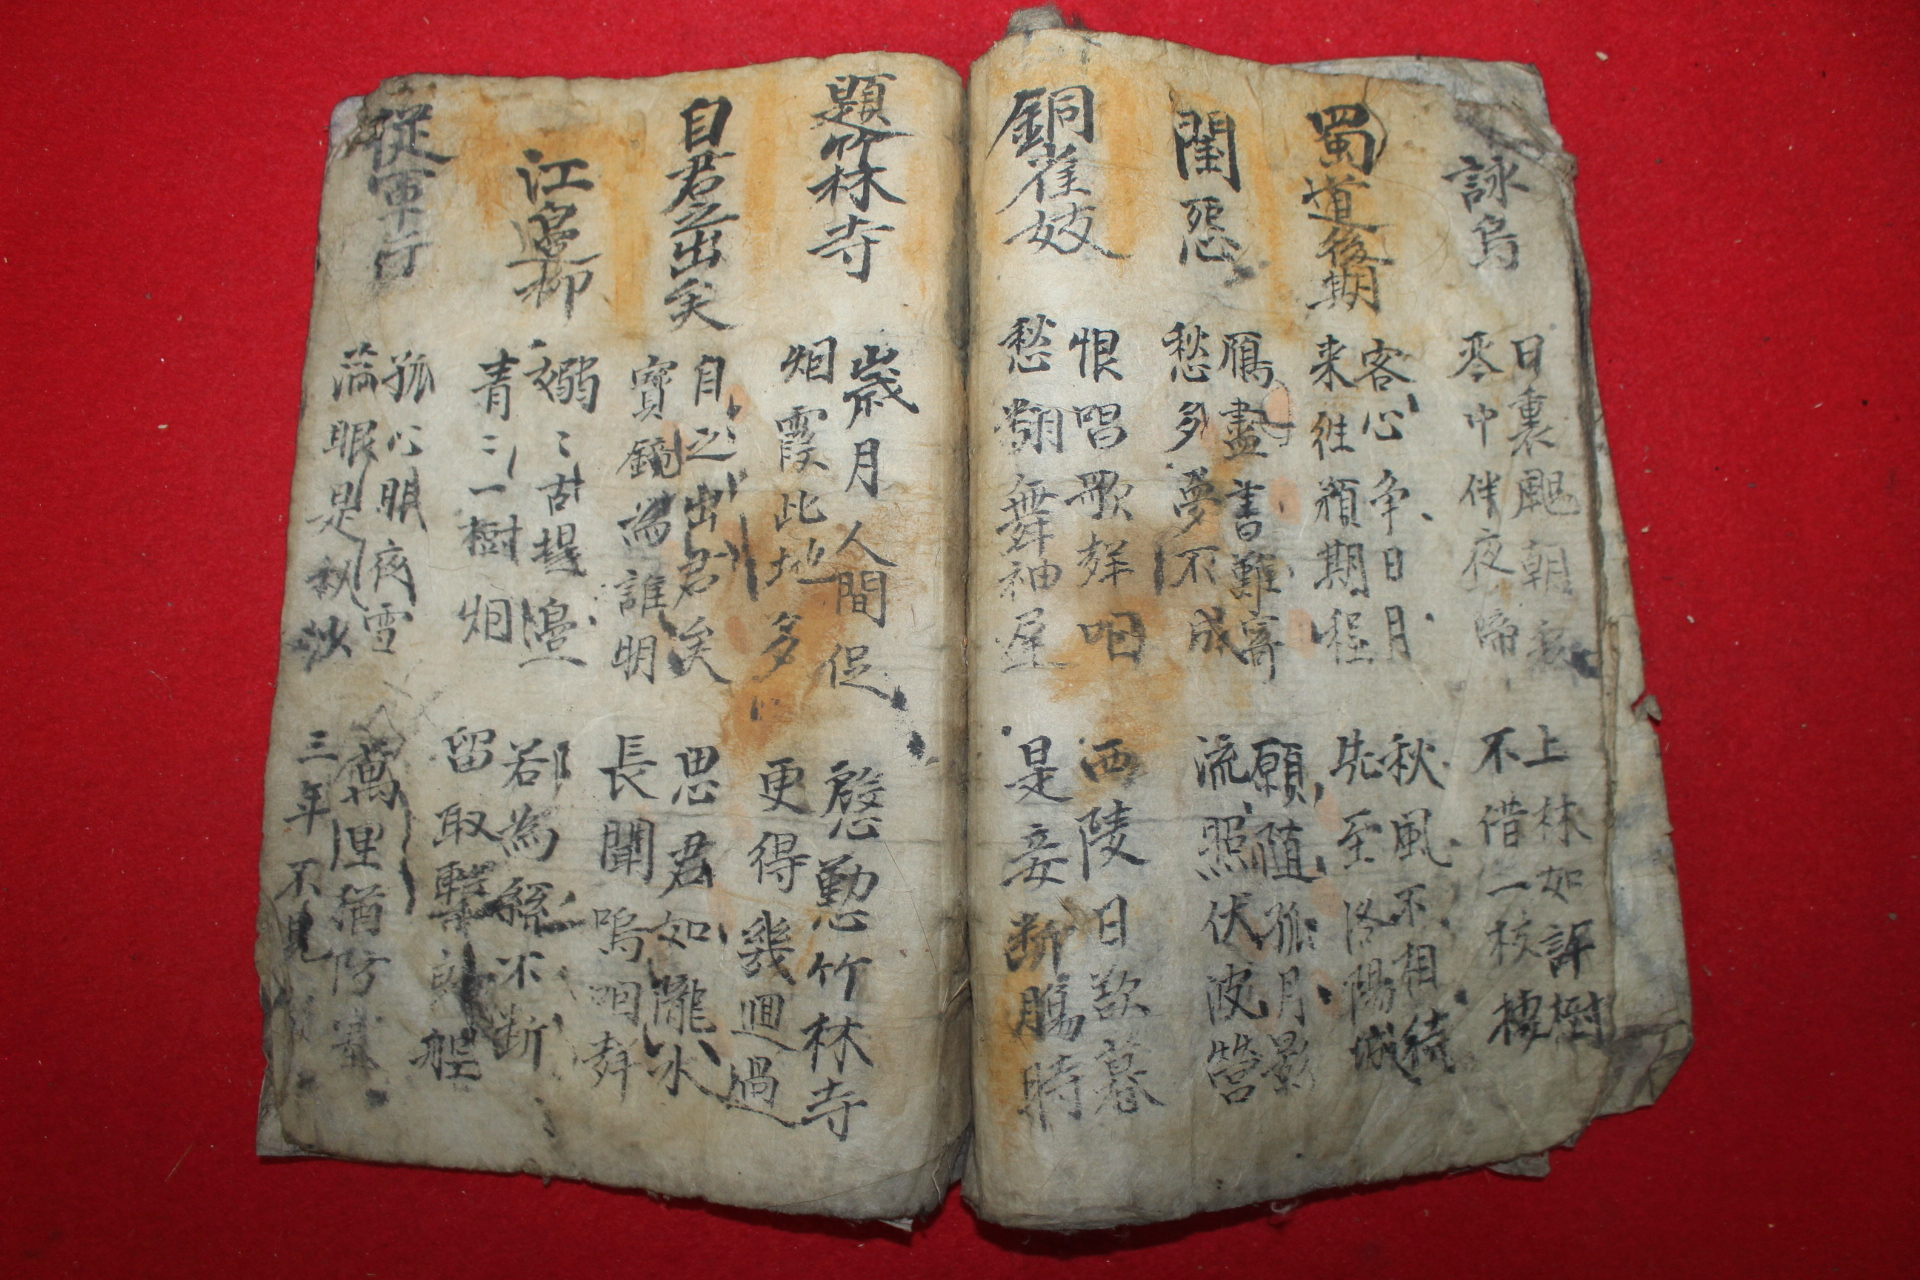 詠烏
日裏颺朝彩
琴中伴夜啼
上林如許樹
不借一枝棲
蜀道後期
客心争日月
来往預期程
秋風不相待
先至洛陽城
閨怨
鴈盡書難寄
愁多夢不成
願隨孤月影
流照伏波營
銅雀妓
恨唱歌聲咽
愁翻舞袖遲
西陵日欲暮
是妾断膓時
題竹林寺
歲月人間促
烟霞此地多
慇懃竹林寺
更得幾廻過
自君之出矣
自之出君矣
寶鏡為誰明
思君如隴水
長聞嗚咽聲
江邊柳
嫋〻古堤邊
青〻一樹烟
若為絲不断
留取繫郎船
從軍行
孤心眠夜雪
滿眼是秋沙
萬里猶防塞
三年不見